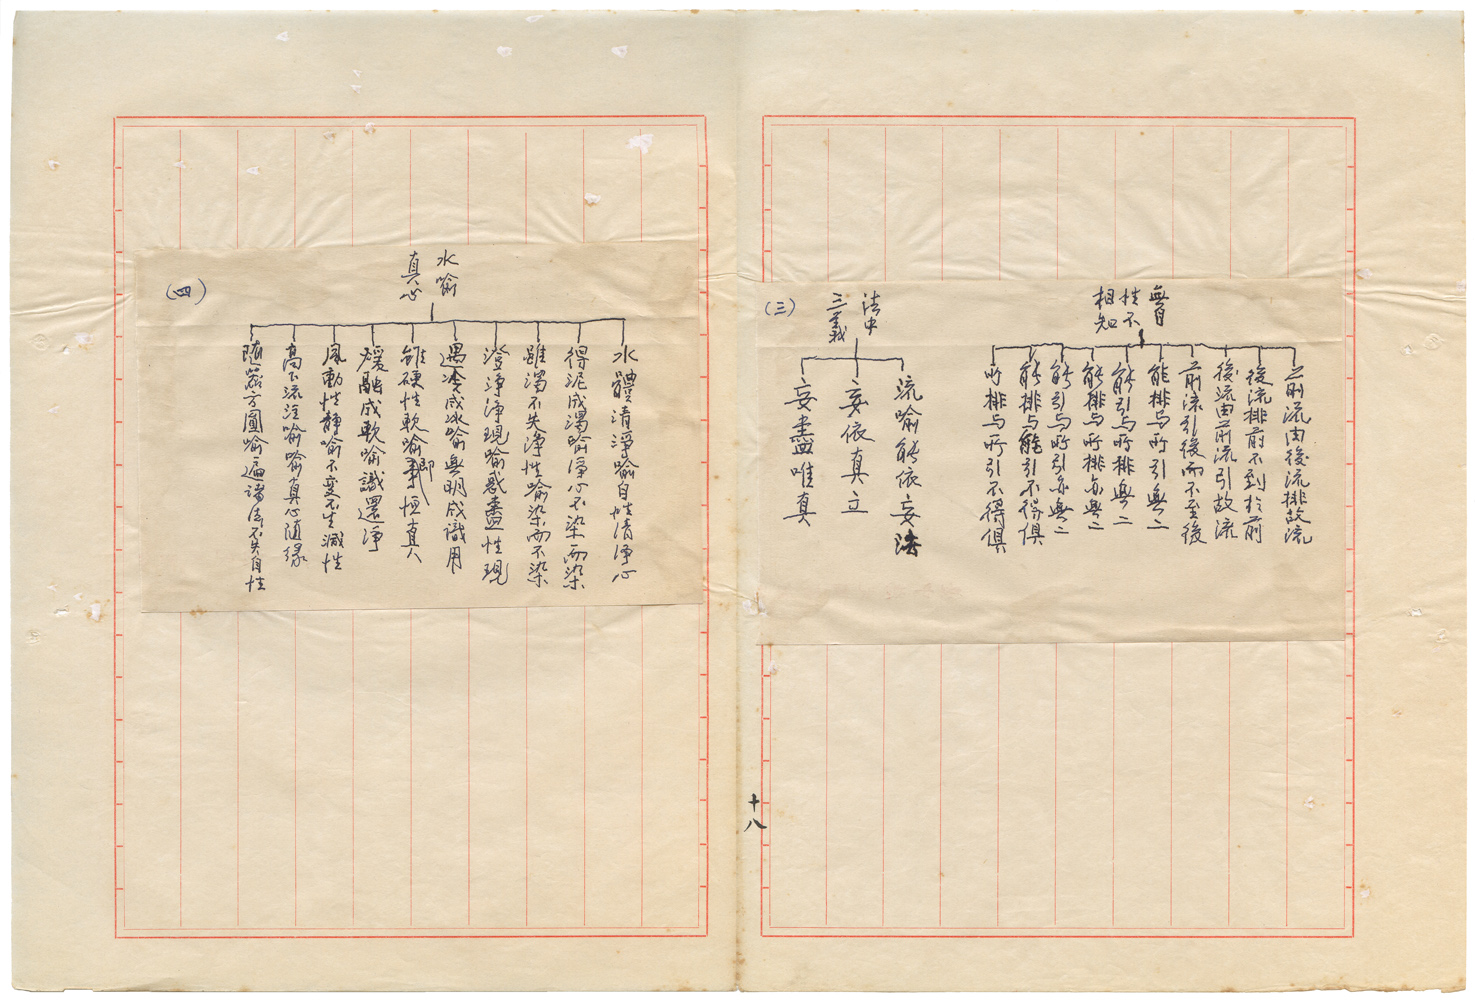 無自
性不
相知
前流由後流排故流
後流排前不到於前
後流由前流引故流
前流引後而不至後
能排与所引無二
能引与所排無二
能排与所排亦無二
能引与所引亦無二
能排与能引不得俱
所排与所引不得俱
法中
三義
流喻能依妄法
妄依真立
妄盡唯真
(三)
十八
水喻
真心
水體清淨喻自性清淨心
得泥成濁喻淨心不染而染
雖濁不失淨性喻染而不染
澄淨淨現喻惑盡性現
遇冷成冰喻無明成識用
雖硬性軟喻即事恒真
煖融成軟喻識還淨
風動性靜喻不變不生滅性
高下流注喻喻真心隨緣
隨器方圓喻遍諸法不失自性
(四)